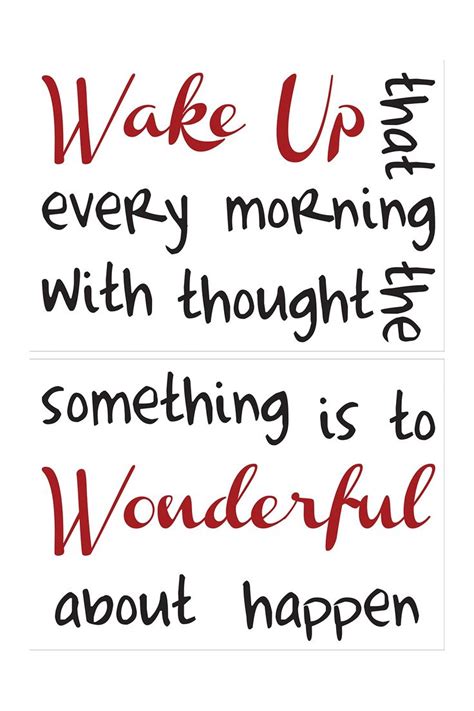 Wake Up
that
every morning
with thought
the
something is to
Wonderful
about happen